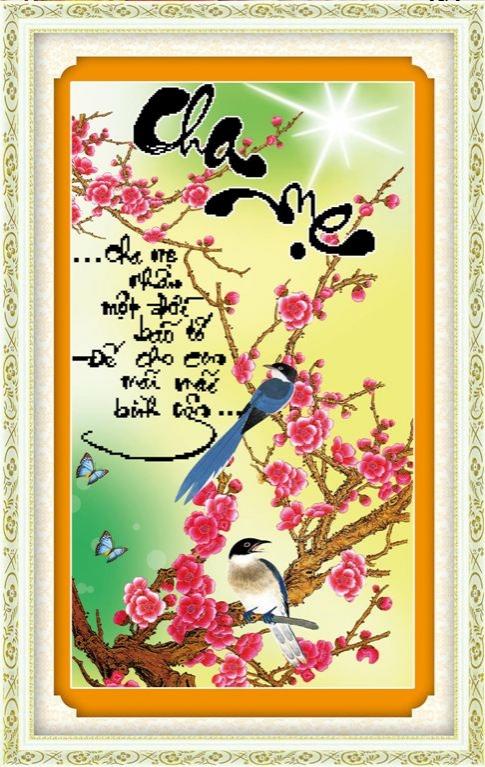 Cha
Mẹ
...Cha mẹ
nhận
một đời
bão tố
Để cho con
mãi mãi
bình yên...